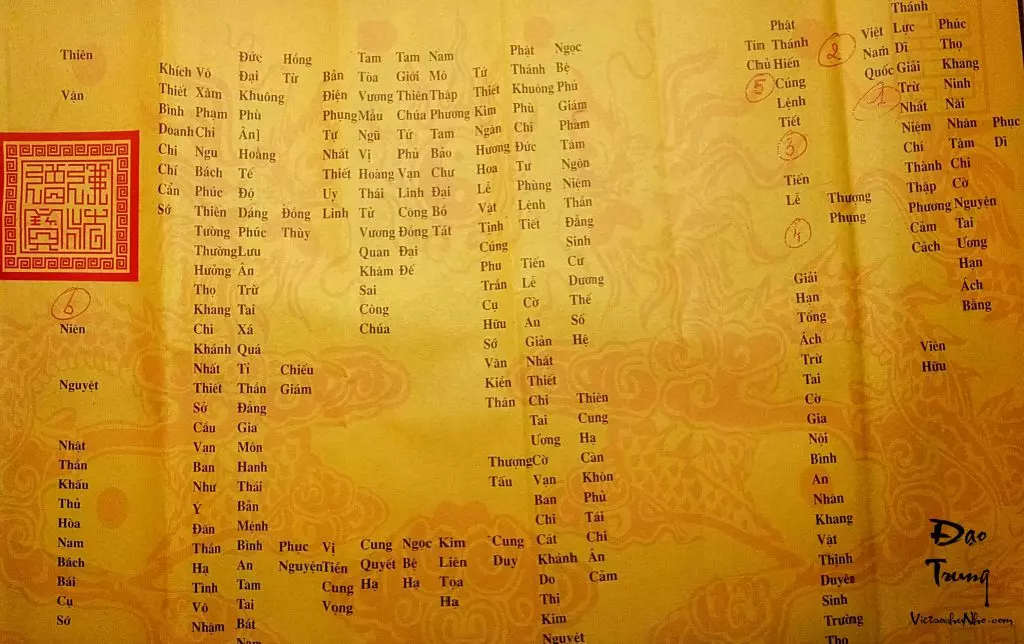 Phục Dĩ
Phúc Thọ Khang Ninh Nãi Nhân Tâm Chi Cờ Nguyện Tai Ương Hạn Ách Bằng
Thánh Lực Dĩ Giải Trừ Nhất Niệm Chí Thành Thập Phương Cảm Cách
Viên Hữu
Việt Nam Quốc
2
1
Thượng Phụng
Phật Thánh Hiến Cúng Lệnh Tiết
3
Tiến Lễ
4
Giải Hạn Tống Ách Trừ Tai Cờ Gia Nội Bình An Nhân Khang Vật Thịnh Duyên Sinh Trường Thọ
Tín Chủ
5
Ngọc Bệ Phủ Giám Phàm Tám Ngôn Niệm Thần Đẳng Sinh Cư Dương Thế Số Hệ
Thiên Cung Hạ Càn Khôn Phủ Tái Chi Ân Cảm
Phật Thánh Khuông Phù Chi Đức Tư Phùng Lệnh Tiết
Tiến Lễ Cờ An Giản Nhất Thiết Chi Tai Ương Cờ Vạn Ban Chi Cát Khánh Do Thị Kim Nguyệt
Tứ Thiết Kim Ngân Hương Hoa Lễ Vật Tịnh Cúng Phu Trần Cụ Hữu Sớ Văn Kiền Thân
Thượng Tấu
Cung Duy
Nam Mô Thập Phương Tam Bảo Chư Đại Bồ Tát
Kim Liên Tọa Hạ
Tam Giới Thiên Chúa Tứ Phủ Vạn Linh Công Đồng Đại Đế
Ngọc Bệ Hạ
Tam Tòa Vương Mẫu Ngũ Vị Hoàng Thái Tử Vương Quan Khâm Sai Công Chúa
Cung Quyết Hạ
Bản Điện Phụng Tư Nhất Thiết Uy Linh
Vị Tiền Cung Vọng
Hồng Từ
Đồng Thùy
Chiếu Giám
Phục Nguyện
Đức Đại Khuông Phù Ân] Hoằng Tế Độ Dáng Phúc Lưu Ân Trừ Tai Xá Quá Tỉ Thần Đẳng Gia Môn Hanh Thái Bản Mệnh Bình An Tam Tai Bát
Vô Xâm Phạm Chi Ngu Bách Phúc Thiên Tường Thường Hưởng Thọ Khang Chi Khánh Nhất Thiết Sở Cầu Vạn Ban Như Ý Đãn Thần Hạ Tình Vô Nhậm
Khích Thiết Bình Doanh Chi Chí Cẩn Sớ
Thiên Vận
6
Niên
Nguyệt
Nhật Thần Khấu Thủ Hòa Nam Bách Bái Cụ Sớ
Đạo Trung
VietsochuNho.com